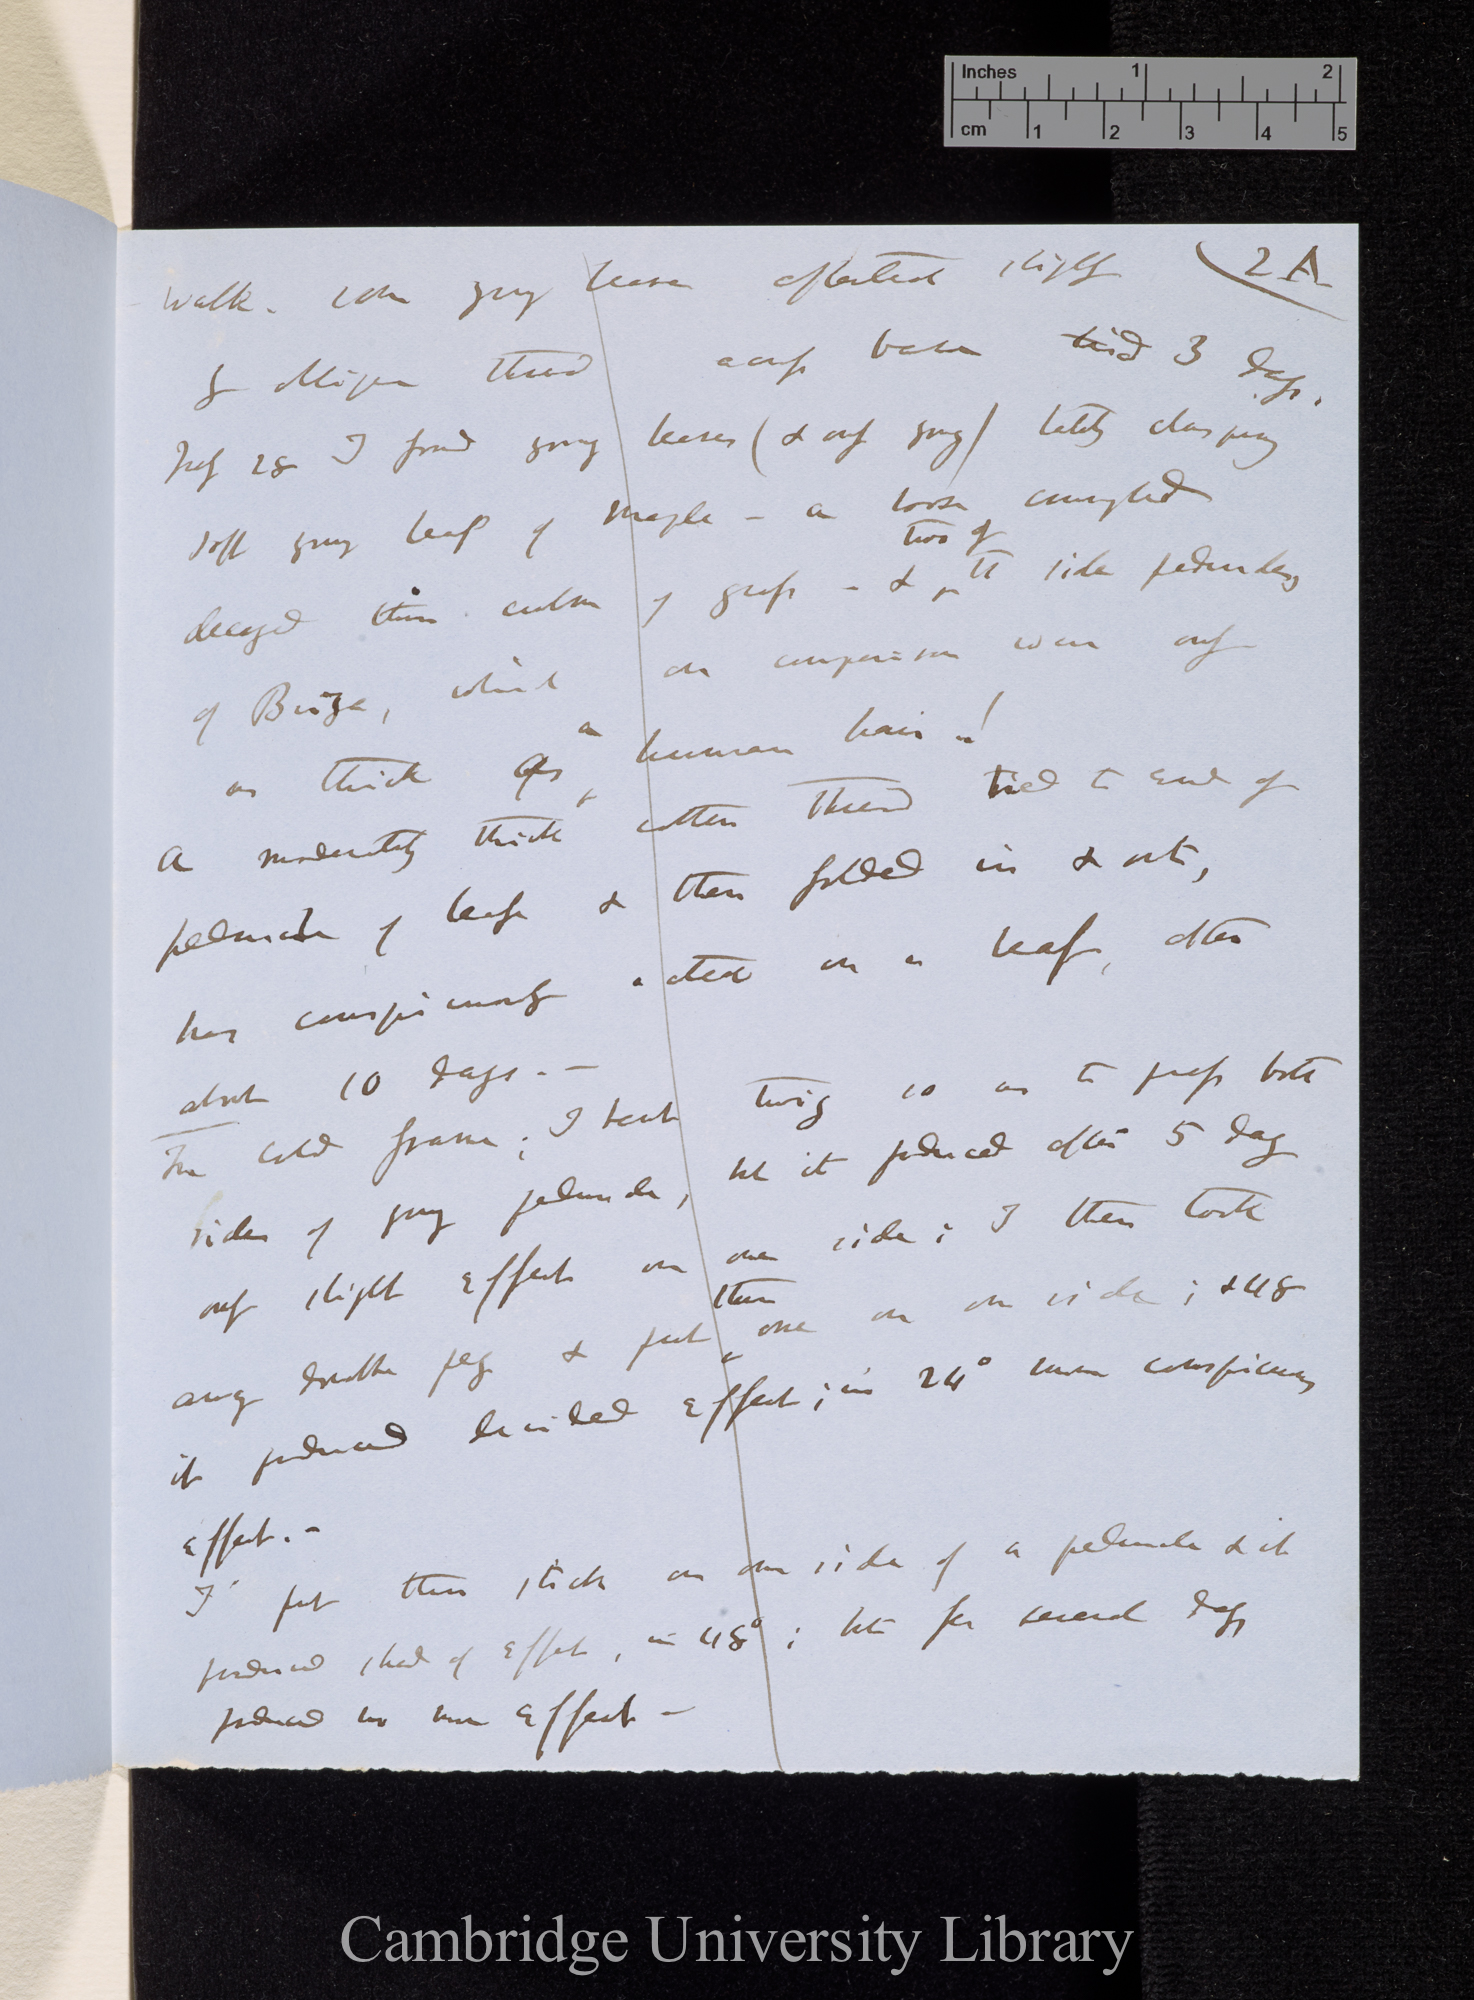 Inches 1 2
cm 1 2 3 4 5
2A
Walk. some young leaves affected slightly
by thread across base tied 3 days.
July 28 I found young leaves (& only young) lately clasping
soft young leaf of Maple - a loose crumpled
decayed thin culm of grass - & two of the side peduncles
of Briza, which on comparison were only
as thick as a human hair!
A moderately thick cotten thread tied to end of
peduncle of leaf & then folded in & out,
has conspicuously acted on a leaf, after
about 10 days. -
In cold frame; I bent twig so as to press both
sides of young peduncle, but it produced after 5 days
only slight effect on one side; I then took
away double peg & put thin one on one side; & 48
it produced decided effect; in 24° more conspicuous
effect. -
I put thin stick on one side of a peduncle & it
produced shad of effect, in 48°; but for several days
produced no more effect -
Cambridge University Library